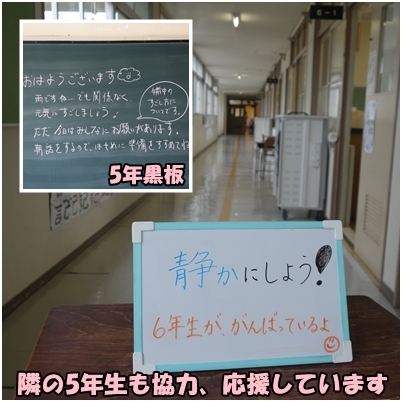 おはようございます
雨ですね…でも関係なく
元気にすごしましょう!
休中の
すごし方に
ついてです。
ただ今日はみんなにお願いがあります。
朝会をするので、はやめに準備をすすめてね
5年黒板
6-1
静かにしよう!
6年生が、がんばっているよ
隣の5年生も協力、応援しています